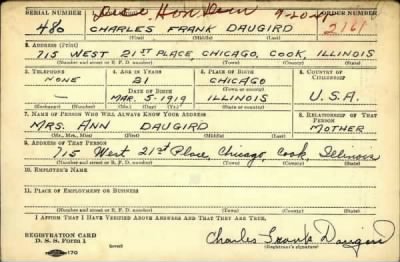 SERIAL NUMBER 1. NAME (Print) ORDER NUMBER
480 CHARLES FRANK DAUGIRD 2161
2. ADDRESS (Print)
715 WEST 21ST PLACE, CHICAGO, COOK, ILLINOIS
(Number and street or R. F. D. number) (Town) (County) (State)
3. TELEPHONE 4. AGE IN YEARS 5. PLACE OF BIRTH 6. COUNTRY OF
NONE 21 CHICAGO CITIZENSHIP
DATE OF BIRTH
— MAR. 5-1919 ILLINOIS U.S.A.
(Exchange) (Number) (Mo.) (Day) (Yr.) (State or country)
7. NAME OF PERSON WHO WILL ALWAYS KNOW YOUR ADDRESS 8. RELATIONSHIP OF THAT PERSON
MRS. ANN DAUGIRD MOTHER
(Mr., Mrs., Miss) (First) (Middle) (Last)
9. ADDRESS OF THAT PERSON
715 West 21st Place, Chicago, Cook, Illinois
(Number and street or R. F. D. number) (Town) (County) (State)
10. EMPLOYER'S NAME
11. PLACE OF EMPLOYMENT OR BUSINESS
(Number and street or R. F. D. number) (Town) (County) (State)
I AFFIRM THAT I HAVE VERIFIED ABOVE ANSWERS AND THAT THEY ARE TRUE.
REGISTRATION CARD
D. S. S. Form 1 Charles Frank Daugird
(over) 170 (Registrant's signature)